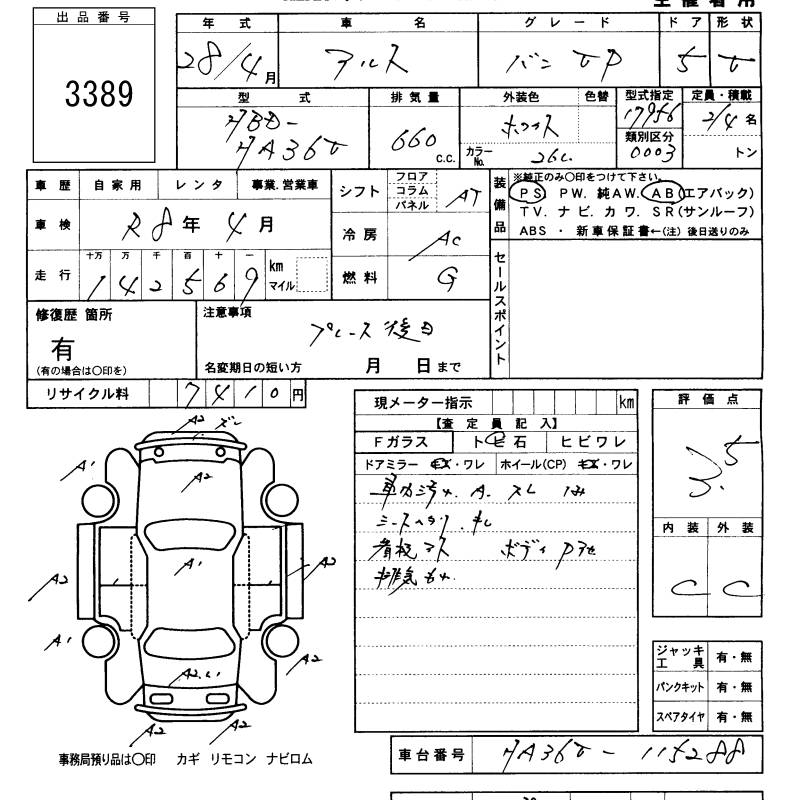 出品番号
3389
年式 車名 グレード ドア 形状
28/4月 アルト バン VP 5 V
型式 排気量 外装色 色替 型式指定 定員・積載
HBD-
HA36V 660 c.c. ホワイト カラーNo. 26U 17956 2/4名
類別区分
0003 トン
車歴 自家用 レンタ 事業.営業車
シフト フロア コラム パネル AT
装備品 ※純正のみ〇印をつけて下さい。
PS PW. 純AW. AB(エアバック)
TV. ナビ. カワ. SR(サンルーフ)
ABS ・ 新車保証書←(注) 後日送りのみ
車検 R8年 4月
冷房 AC
走行 十万 万 千 百 十 一
142569 km マイル
燃料 G
セールスポイント
修復歴 箇所
有
(有の場合は〇印を)
注意事項
プレース後日
名変期日の短い方 月 日まで
リサイクル料 7410円
現メーター指示 km
【査定員記入】
Fガラス トビ石 ヒビワレ
ドアミラー キズ・ワレ ホイール(CP) キズ・ワレ
車内汚れ. A. スレ
シースヘタリ. キレ
看板アト ボディ
排気
評価点
3.5
内装 外装
C C
ジャッキ工具 有・無
パンクキット 有・無
スペアタイヤ 有・無
A2 ズレ
A1
A2
A1
A2 A2
A1
A2
A2.U
A2 A2
事務局預り品は〇印 カギ リモコン ナビロム
車台番号 HA36V-115288